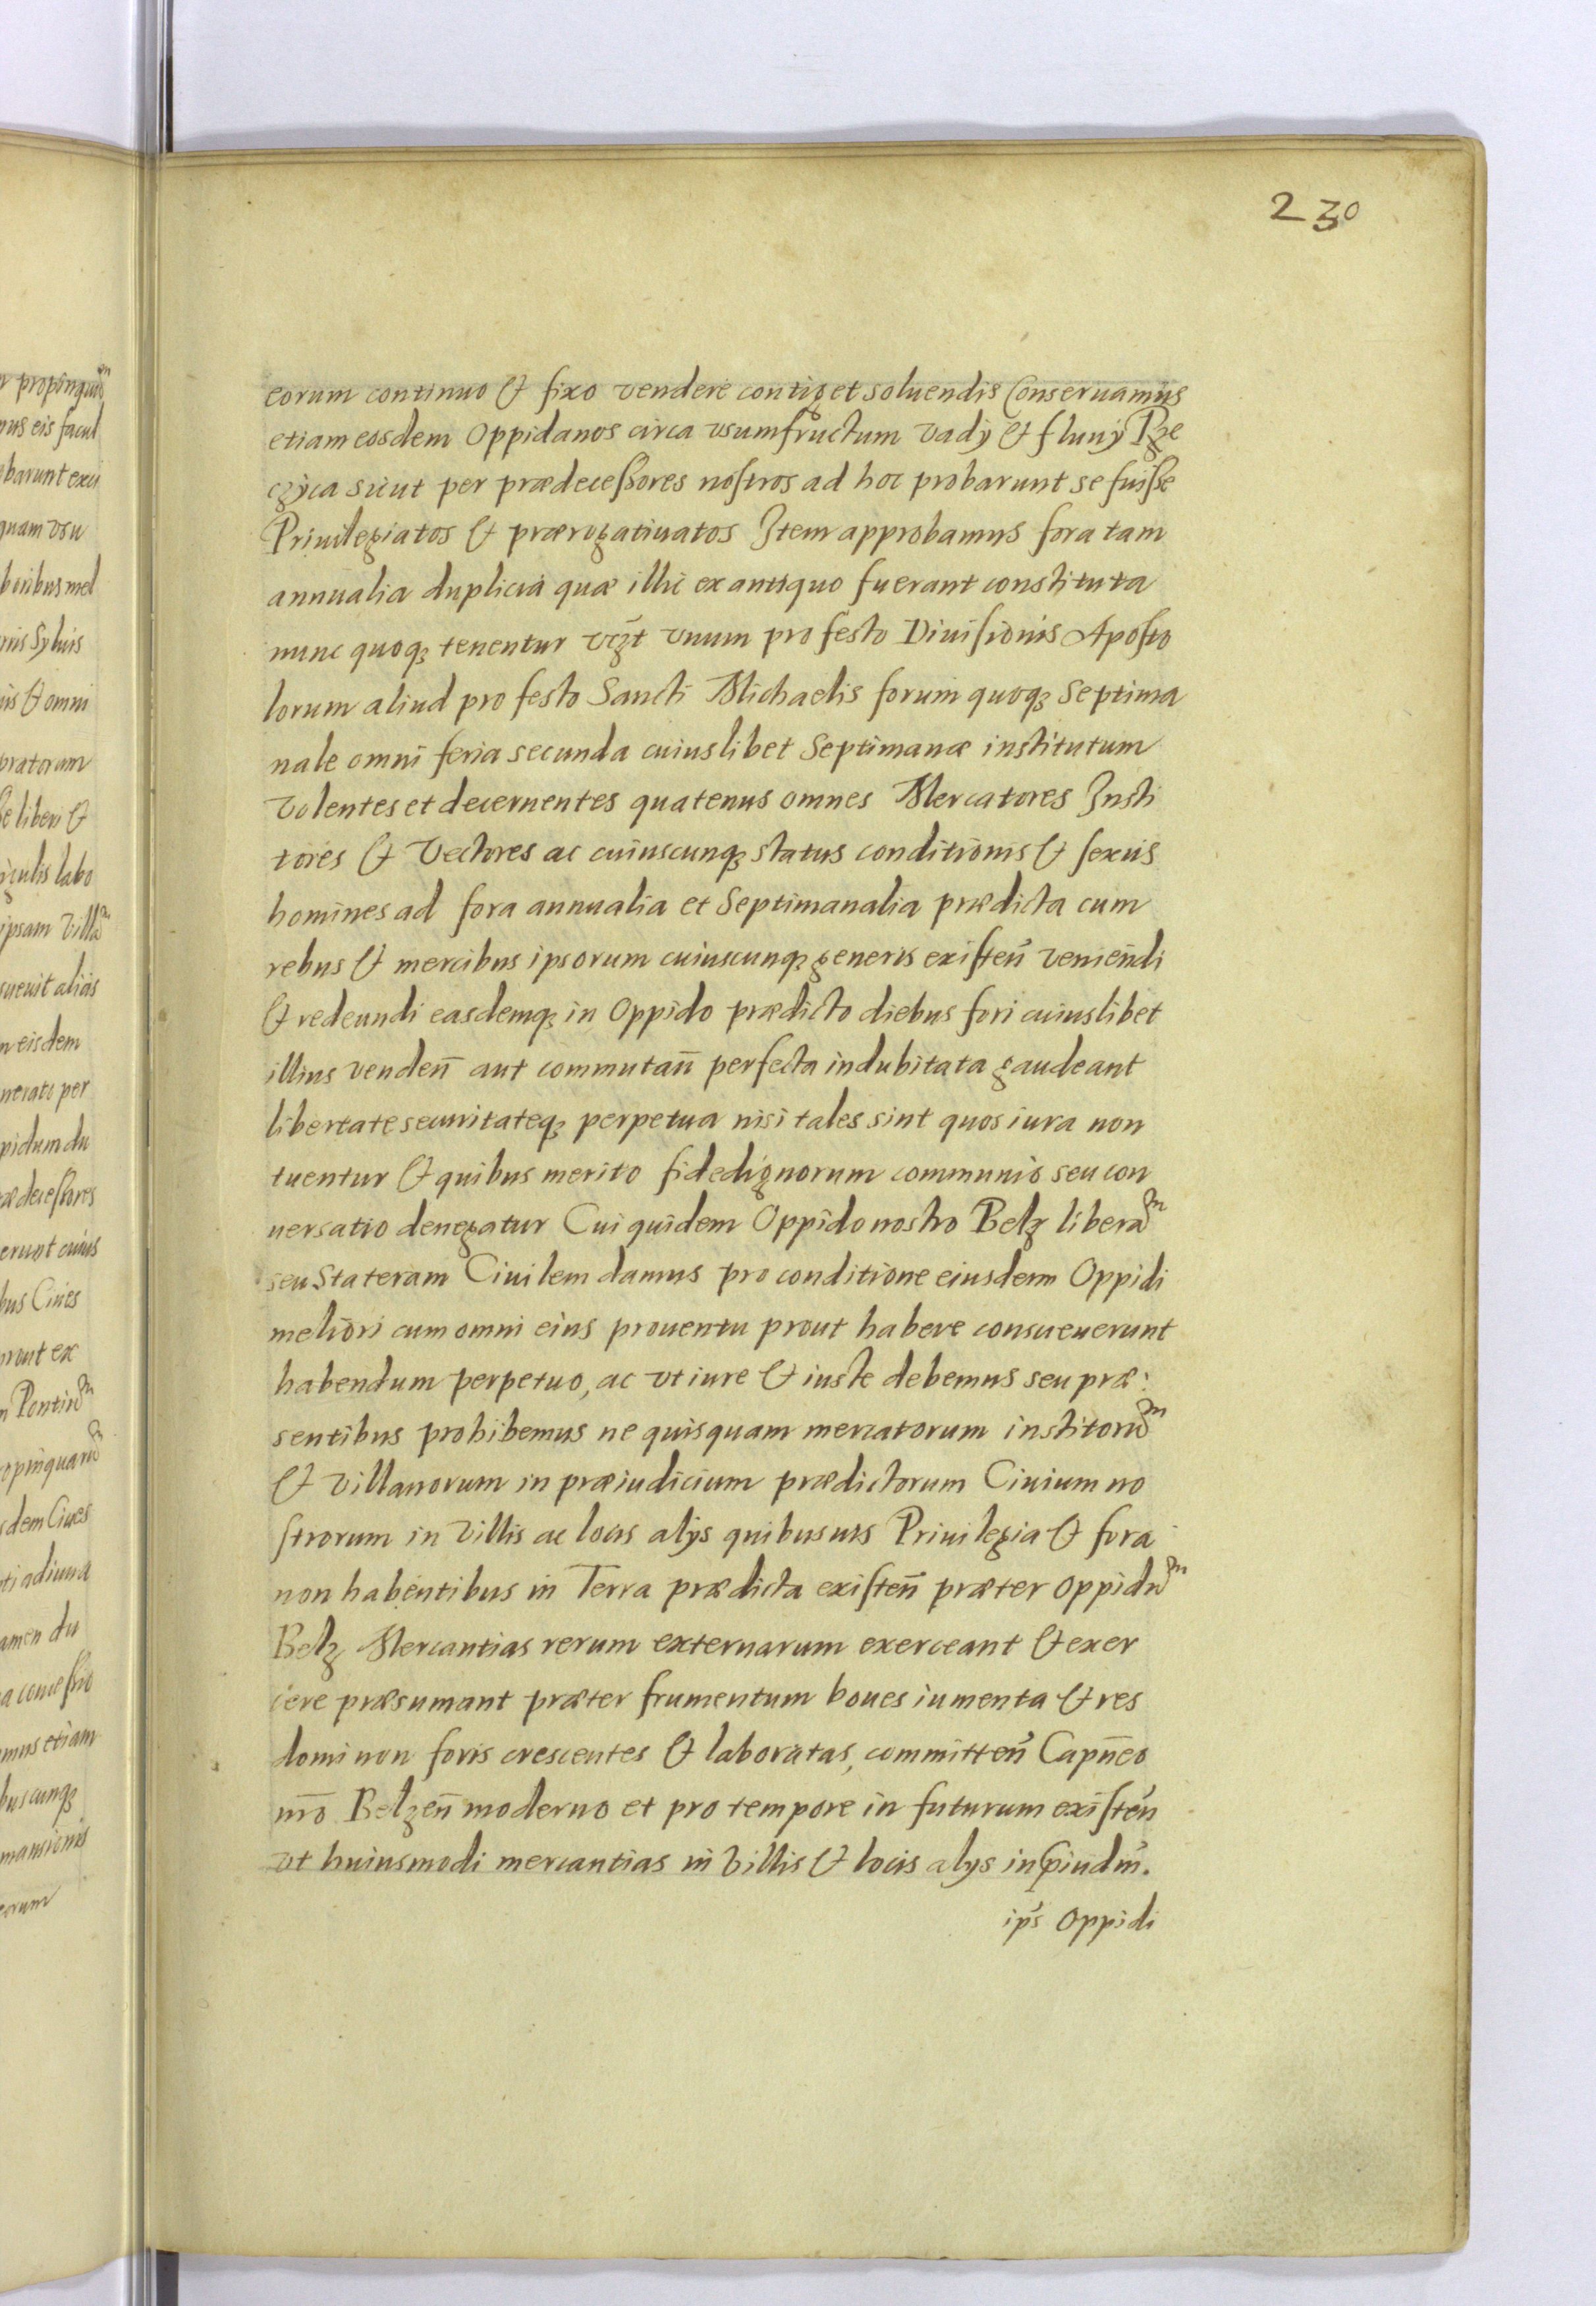 230
eorum continuo & fixo vendere contiget soluendis Conseruamus
etiam eosdem Oppidanos circa vsumfructum vadÿ & fluuÿ Rze
czÿca sicut per prædecessores nostros ad hoc probarunt se fuisse
Priuilegiatos & prærogatiuatos Item approbamus fora tam
annualia duplicia quæ illic ex antiquo fuerant constituta
nunc quoq; tenentur vczt vnum pro festo Diuisionis Aposto
lorum aliud pro festo Sancti Michaelis forum quoq; Septima
nale omni feria secunda cuiuslibet Septimanæ institutum
Volentes et decernentes quatenus omnes Mercatores Insti
tores & Vectores ac cuiuscunq; status conditionis & sexus
homines ad fora annualia et Septimanalia prædicta cum
rebus & mercibus ipsorum cuiuscunq; generis existen̄ veniendi
& redeundi easdemq; in Oppido prædicto diebus fori cuiuslibet
illius venden̄ aut commutan̄ perfecta indubitata gaudeant
libertate securitateq; perpetua nisi tales sint quos iura non
tuentur & quibus merito fidedignorum communio seu con
uersatio denegatur Cui quidem Oppido nostro Belz libera͂m
seu Stateram Ciuilem damus pro conditione eiusdem Oppidi
meliori cum omni eius prouentu prout habere consueuerunt
habendum perpetuo, ac vt iure & iuste debemus seu præ:
sentibus prohibemus ne quisquam mercatorum institorum
& villanorum in præiudicium prædictorum Ciuium no
strorum in Villis ac locis alÿs quibusuis Priuilegia & fora
non habentibus in Terra prædicta existen̄ præter oppidum
Belz Mercantias rerum externarum exerceant & exer
cere præsumant præter frumentum boues iumenta & res
domi non foris crescentes & laboratas, committen̄ Capn̄eo
nr̄o Belzen̄ moderno et pro tempore in futurum existen̄
vt huiusmodi mercantias in Villis & locis alÿs in p̄iudm̄.
ip̄s Oppidi